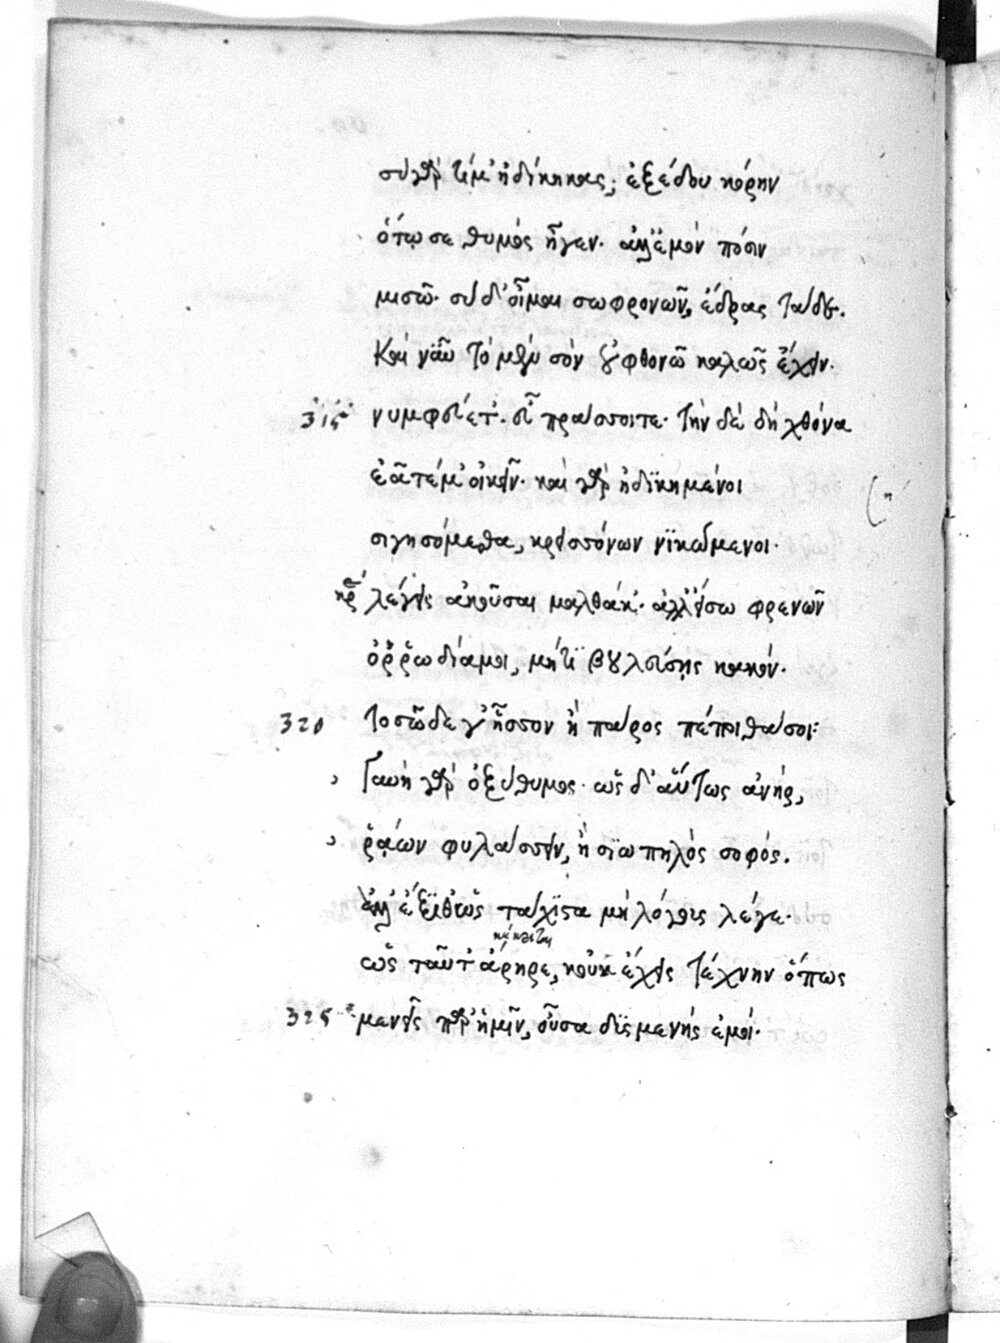 σὺ γὰρ τί μ' ἠδίκηκας; ἐξέδου κόρην
ὅτῳ σε θυμὸς ἦγεν. ἀλλ' ἐμὸν πόσιν
μισῶ. σὺ δ' οἶμαι σωφρονῶν, ἔδρας τάδε.
καὶ νῦν τὸ μὲν σὸν οὐ φθονῶ καλῶς ἔχειν.
315 νυμφεύετ'. εὖ πράσσοιτε. τὴν δὲ δὴ χθόνα
ἐᾶτέ μ' οἰκεῖν. καὶ γὰρ ἠδικημένοι
σιγησόμεθα, κρεισσόνων νικώμενοι.
κρ λέγεις ἀκοῦσαι μαλθάκ'. ἀλλ' εἴσω φρενῶν
ὀῤῥωδία μοι, μή τι βουλεύσῃς κακόν.
320 τοσῶδε γ' ἧσσον ἢ πάρος πέποιθά σοι:
γυνὴ γὰρ ὀξύθυμος. ὡς δ' αὔτως ἀνήρ,
ῥᾴων φυλάσσειν, ἢ σιωπηλὸς σοφός.
ἀλλ' ἔξιθ' ὡς τάχιστα μὴ λόγους λέγε.
ὡς ταῦτ' ἄρηρε, κοὐκ ἔχεις τέχνην ὅπως
325 μενεῖς παρ' ἡμῖν, οὖσα δυσμενὴς ἐμοί.